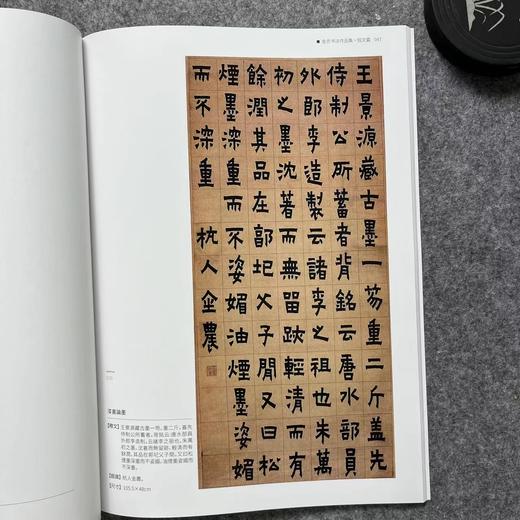 王景源藏古墨一笏重二斤盖先
侍制公所蓄者背銘云唐水部員
外郎李造製云諸李之祖也朱萬
初之墨沈著而無留跡輕清而有
餘潤其品在郭圯父子閒又曰松
煙墨深重而不姿媚油煙墨姿媚
而不深重 杭人金農
047
漆書論墨
【释文】王景源藏古墨一笏,重二斤,蓋先
侍制公所蓄者,背銘云:唐水部員
外郎李造制,云諸李之祖也。朱萬
初之墨,沈著而無留跡,輕清而有
餘潤,其品在郭圯父子間。又曰松
煙墨深重而不姿媚,油煙墨姿媚而
不深重。
杭人金農。
【尺寸】105.5×48cm